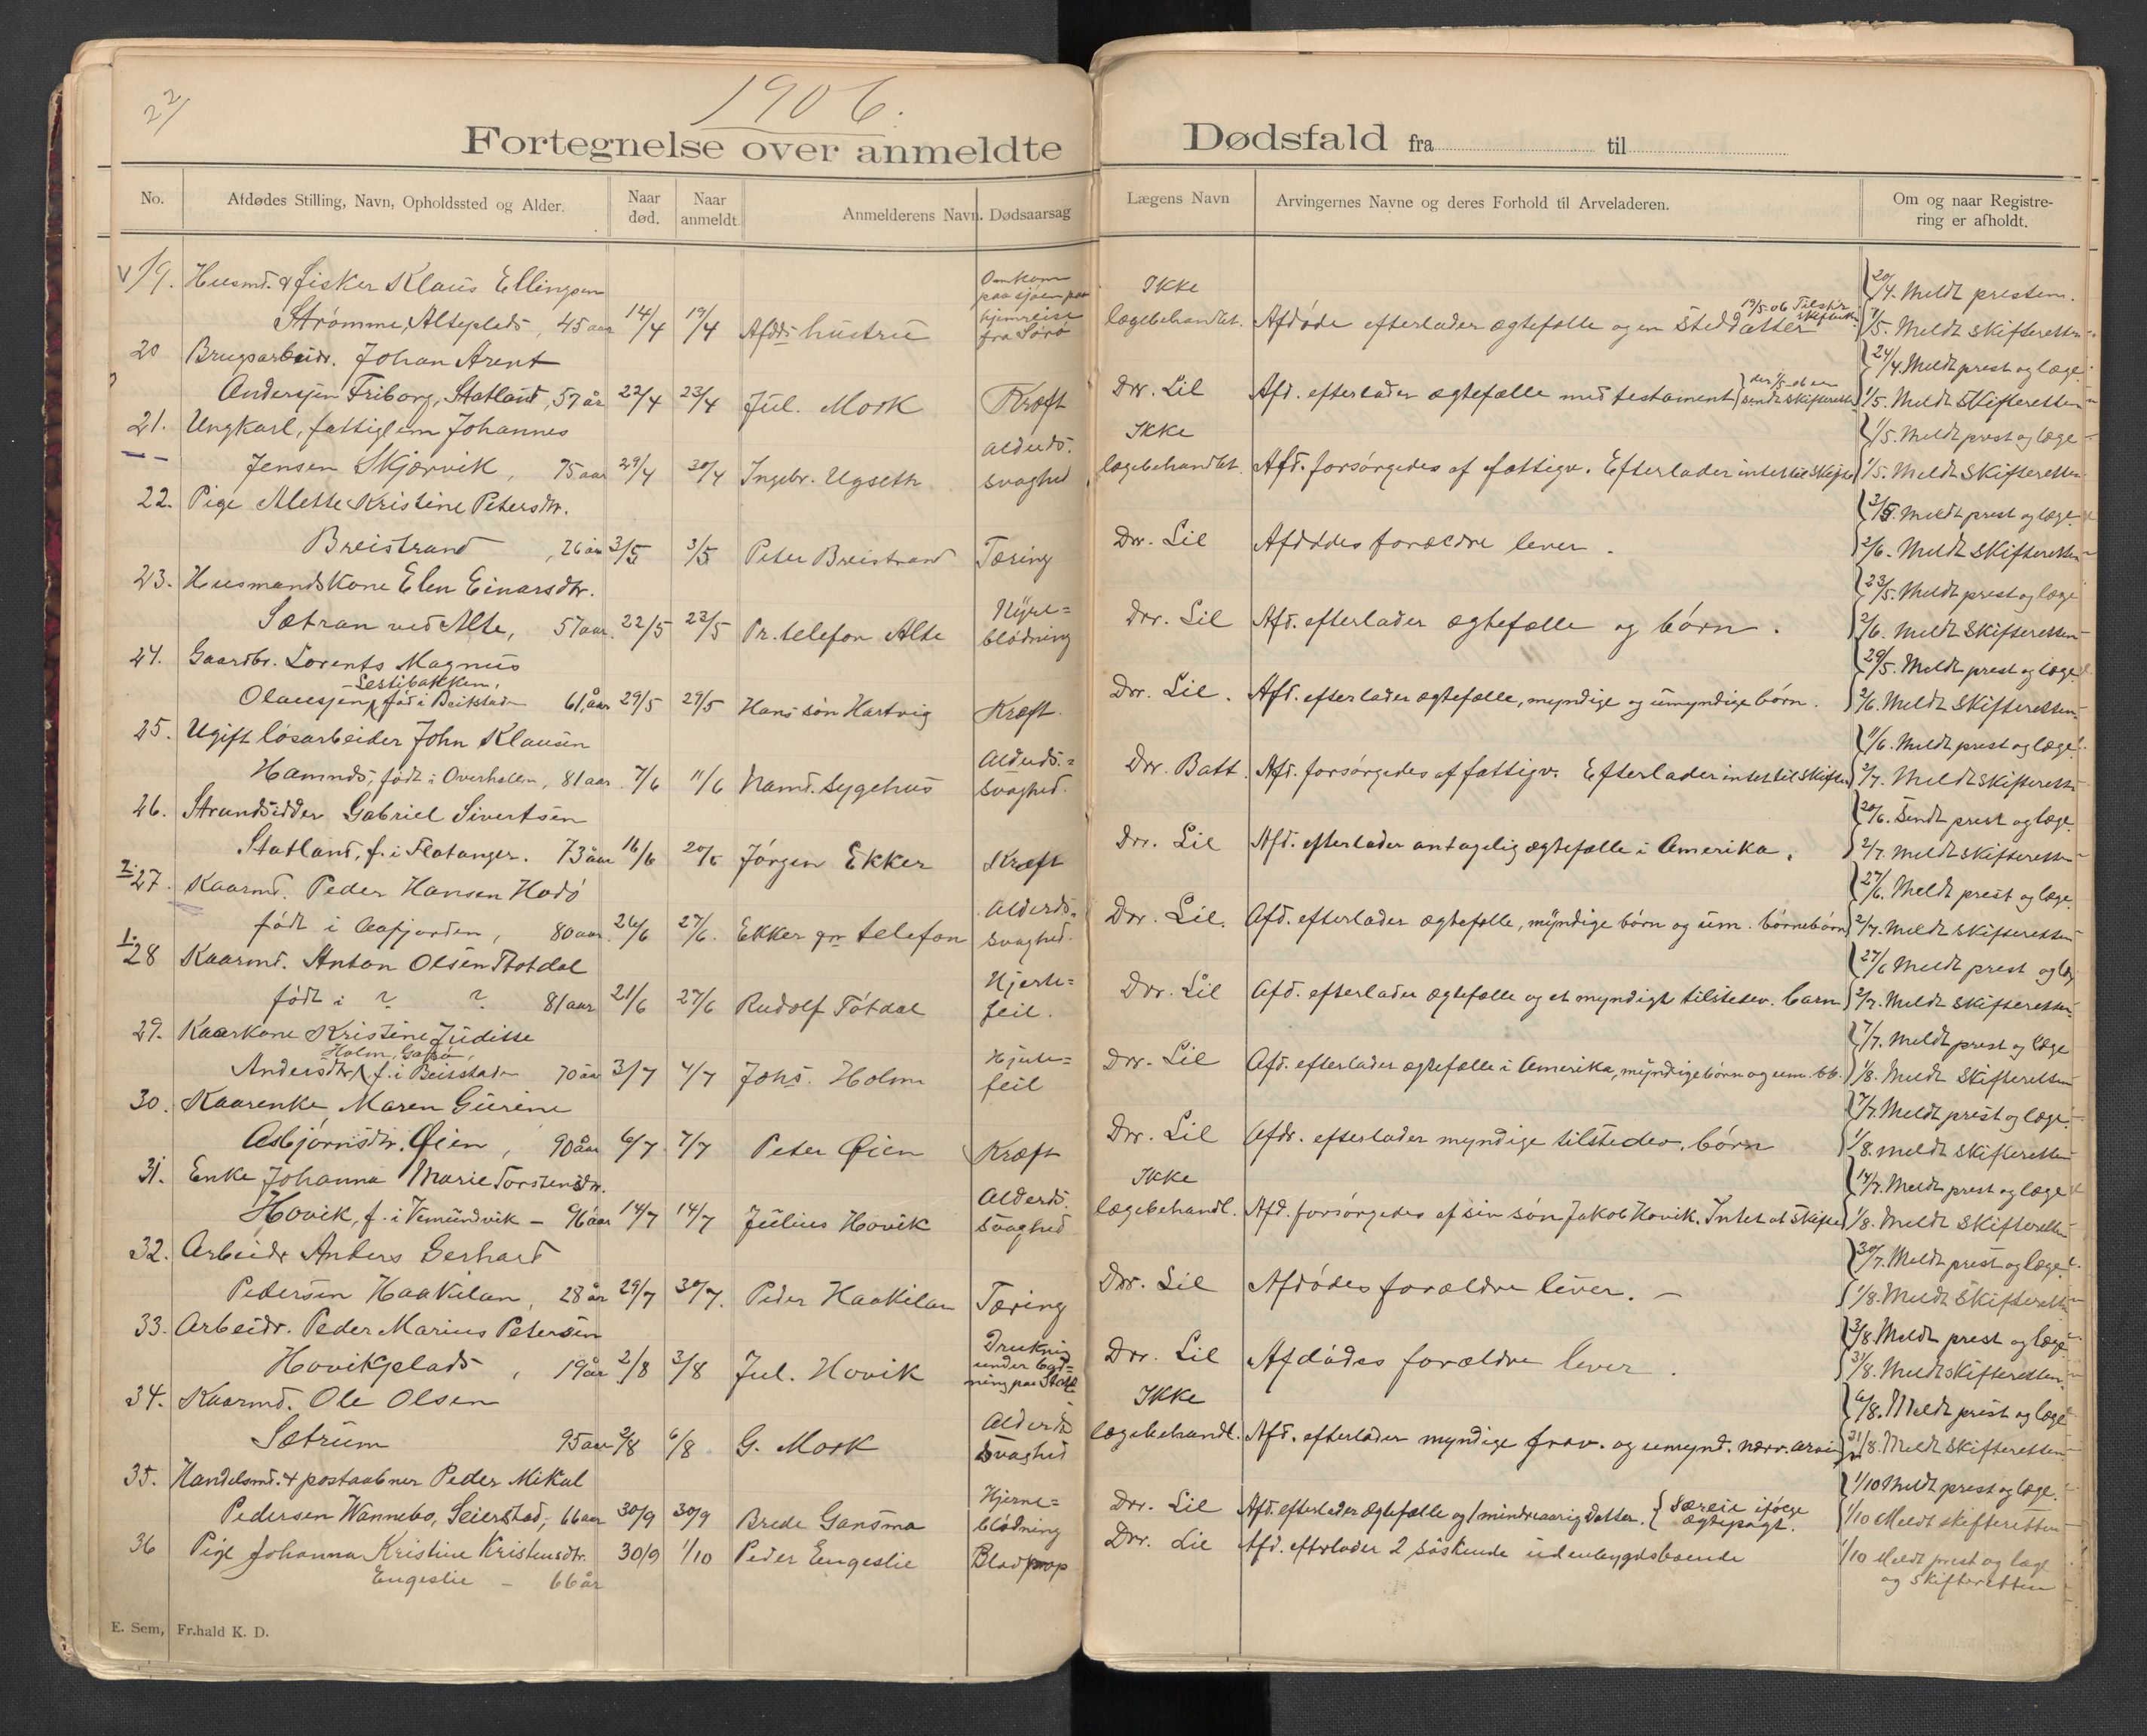 22/
1906.
Fortegnelse over anmeldte Dødsfald fra til
No. Afdødes Stilling, Navn, Opholdssted og Alder. Naar død. Naar anmeldt. Anmelderens Navn. Dødsaarsag Lægens Navn Arvingernes Navne og deres Forhold til Arveladeren. Om og naar Registrering er afholdt.
19. Husmd. & Fisker Klaus Ellingsen Omkom paa sjøen paa hjemreise fra Sørø Ikke 20/4. Meldt presten.
Strømme, Alteplads, 45 aar 14/4 19/4 Afdøs hustru lægebehandlet. Afdøde efterlader ægtefælle og en steddatter 7/5. Meldt skifteretten
20 Brugsarbeidr. Johan Arent 24/4 Meldt prest og læge
Andersen Friborg, Statland, 57 år 22/4 23/4 Jul. Mork Kræft Dr. Lil Afd. efterlader ægtefælle med testament 1/5. Meldt Skifteretten
21. Ungkarl, fattiglem Johannes Alderds- Ikke 1/5. Meldt prest og læge
Jensen Skjærvik, 75 aar 29/4 30/4 Ingebr. Ugseth svaghed lægebehandlet. Afd. forsørgedes af fattigv. Efterlader intet til skifte 1/5. Meldt Skifteretten
22. Pige Mette Kristine Petersdtr. 3/5. Meldt prest og læge
Breistrand, 26 år 3/5 3/5 Peter Breistrand Tæring Dr. Lil Afdødes forældre lever. 2/6. Meldt Skifteretten
23. Husmandskone Elen Einarsdtr. Nyre- 23/5. Meldt prest og læge
Sætran ved Alte, 57 aar. 22/5 23/5 Pr. telefon Alte blødning Dr. Lil Afd. efterlader ægtefælle og børn. 2/6. Meldt Skifteretten
24. Gaardbr. Lorents Magnus 29/5. Meldt prest og læge
Olaussen, Sestibakken, fød i Beitstaden 61 aar 29/5 29/5 Hans søn Hartvig Kræft Dr. Lil. Afd. efterlader ægtefælle, myndige og umyndige børn. 2/6. Meldt Skifteretten
25. Ugift løsarbeider John Klausen Alderds- 11/6. Meldt prest og læge
Hamnds, født i Overhallen, 81 aar 7/6 11/6 Namd. sygehus svaghed. Dr. Batt. Afd. forsørgedes af fattigv. Efterlader intet til skifte 2/7. Meldt skifteretten
26. Strandsidder Gabriel Sivertsen 20/6. Sendt prest og læge.
Statland, f. i Flatanger. 73 aar 16/6 20/6 Jørgen Ekker Kræft Dr. Lil Afd. efterlader antagelig ægtefælle i Amerika. 2/7. Meldt skifteretten
2. 27. Kaarmd. Peder Hansen Hodø Alderds- 27/6. Meldt prest og læge
født i Aafjorden, 80 aar. 26/6 27/6. Ekker pr telefon svaghed. Dr. Lil. Afd. efterlader ægtefælle, myndige børn og um. børnebørn 2/7. Meldt skifteretten
1. 28 Kaarmd. Anton Olsen Totdal Hjerte- 27/6 Meldt prest og læg
født i ? ? 81 aar 21/6 27/6 Rudolf Tøtdal feil. Dr. Lil Afd. efterlader ægtefælle og et myndigt tilstedev. barn 2/7. Meldt skifteretten
29. Kaarkone Kristine Juditte Hjerte- 7/7. Meldt prest og læge
Andersdtr. Holm, f. i Beitstaden 70 aar 3/7 4/7 Johs. Holm feil Dr. Lil Afd. efterlader ægtefælle i Amerika, myndige børn og um. bb. 1/8. Meldt Skifteretten
30. Kaarenke Maren Gurine 7/7. Meldt prest og læge.
Asbjørnsdtr. Øien, 90 aar 6/7 7/7 Peter Øien Kræft Dr. Lil Afdr. efterlader myndige tilstedev. børn 1/8. meldt Skifteretten
31. Enke Johanna Marie Torstensdtr. Alderds- Ikke 14/7. Meldt prest og læge
Hovik, f. i Vemundvik - 96 aar 14/7 14/7 Julius Hovik svaghed lægebehandl. Afd. forsørgedes af sin søn Jakob Hovik. Intet at skifte 1/8. Meldt Skifteretten
32. Arbeidr Anders Gerhard 30/7. Meldt prest og læge
Pedersen Haakilan, 28 år 29/7 30/7. Peder Haakilan Tæring Dr. Lil Afdødes forældre lever. - 1/8. Meldt Skifteretten
33. Arbeidr. Peder Marius Petersen Drukning under badning paa Statl 3/8. Meldt prest og læge
Hovikplads, 19 år 2/8 3/8 Jul. Hovik Dr. Lil Afdødes forældre lever. 31/8. Meldt skifteretten
34. Kaarmd. Ole Olsen Alderds Ikke 6/8. Meldt prest og læge
Sætrum 95 aar 2/8 6/8 G. Mork svaghed lægebehandl. Afd. efterlader myndige frav. og umynd. nærv. arvin 31/8. Meldt skifteretten
35. Handelsmd. & postaabner Peder Mikal Hjerne- 1/10 Meldt prest og læge.
Pedersen Wannebo, Seierstad, 66 aar 30/9 30/9 Brede Gansmo blødning Dr. Lil Afd. efterlader ægtefælle og 1 mindreaarig datter. { Særeie ifølge ægtepagt. 1/10 Meldt skifteretten
36 Pige Johanna Kristine Kristensdtr. 30/9 1/10 Peder Engeslie Blodprop Dr. Lie Afd. efterlader 2 søskende udenbygdsboende 1/10 Meldt prest og læge
Engeslie - 66 år og skifteretten
E. Sem, Fr.hald K. D.